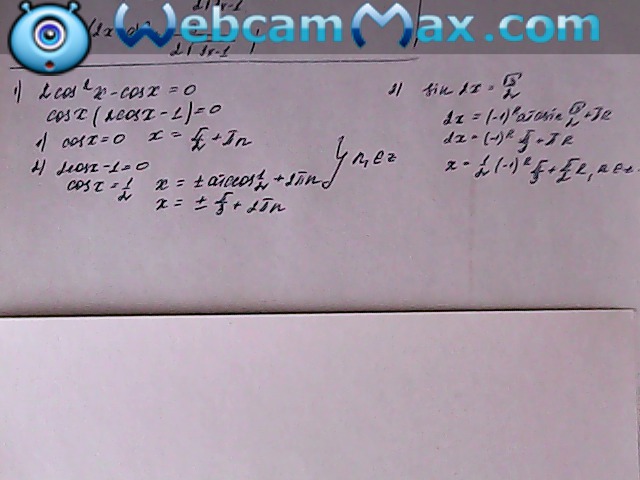 WebcamMax.com
1) 2cos²x - cosx = 0
cosx(2cosx - 1) = 0
1) cosx = 0 x = π/2 + πn
2) 2cosx - 1 = 0
cosx = 1/2 x = ± arccos 1/2 + 2πn } n, ∈ z
x = ± π/3 + 2πn
2) sin 2x = √3/2
2x = (-1)ᵏ arcsin √3/2 + πk
2x = (-1)ᵏ π/3 + πk
x = 1/2 (-1)ᵏ π/3 + π/2 k, k ∈ z